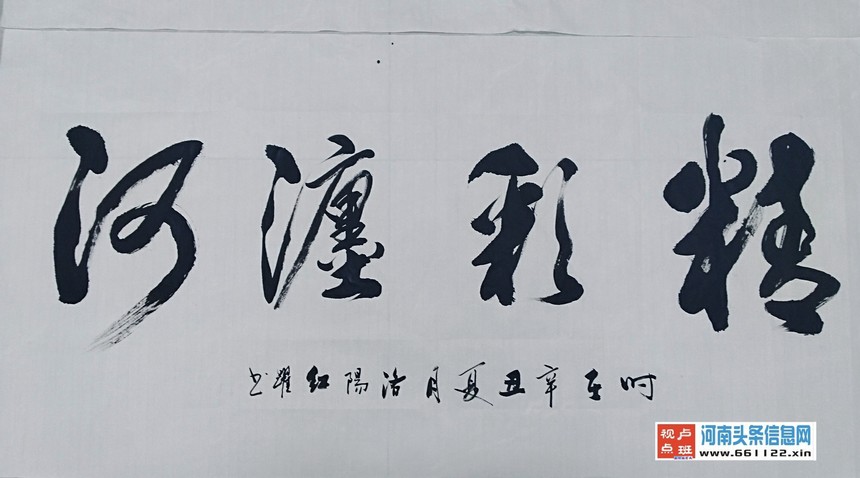 精彩瀍河
时在辛丑夏月洛陽红躍书
卢班
视点
河南头条信息网
www.661122.xin